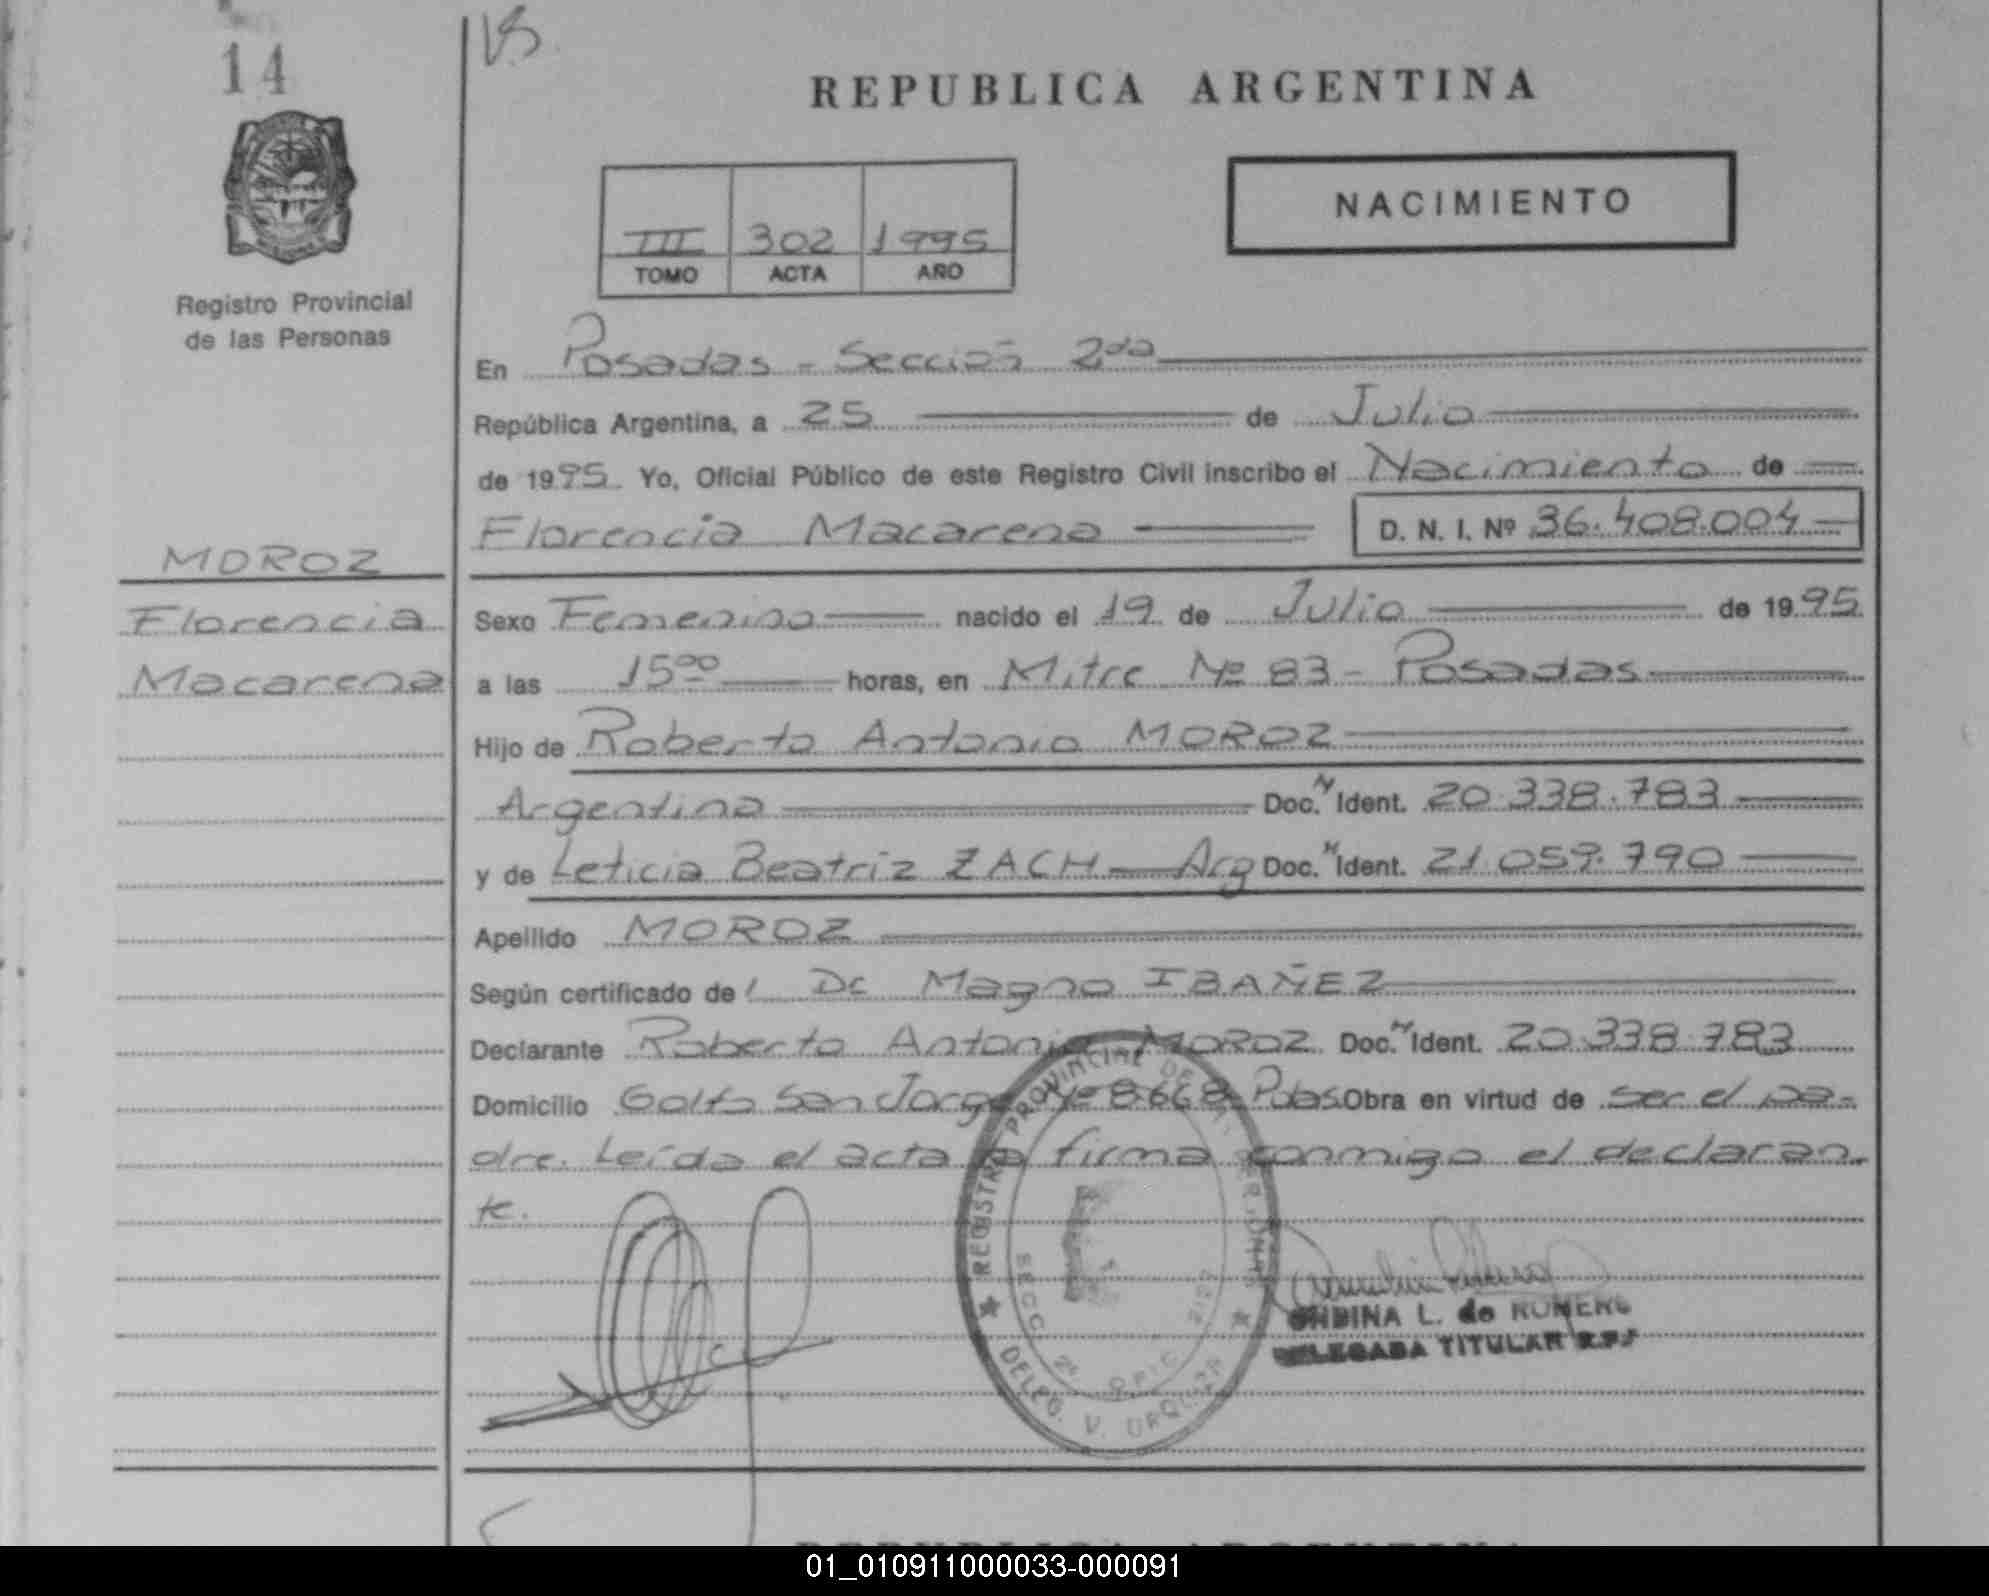 14
VB
REPUBLICA ARGENTINA
NACIMIENTO
III 302 1995
TOMO ACTA AÑO
Registro Provincial
de las Personas
En Posadas - Sección 2da
República Argentina, a 25 de Julio
de 1995 Yo, Oficial Público de este Registro Civil inscribo el Nacimiento de
Florencia Macarena D. N. I. Nº 36.408.004
MOROZ
Florencia
Macarena
Sexo Femenino nacido el 19 de Julio de 1995
a las 15 00 horas, en Mitre Nº 83 - Posadas
Hijo de Roberto Antonio MOROZ
Argentina Doc. N Ident. 20.338.783
y de Leticia Beatriz ZACH - Arg Doc. N Ident. 21.059.790
Apellido MOROZ
Según certificado de l Dr Magno IBAÑEZ
Declarante Roberto Antonio MOROZ Doc. N Ident. 20.338.783
Domicilio Golfo San Jorge Nº 8668 Pdas Obra en virtud de ser el pa-
dre. Leída el acta la firma conmigo el declaran-
te.
REGISTRO PROVINCIAL DE LAS PERSONAS
SECC. 2a OFIC.
DELEG. V. URQUIZA
ONDINA L. de ROMERO
DELEGADA TITULAR R.P.P
REPUBLICA ARGENTINA
01_010911000033-000091